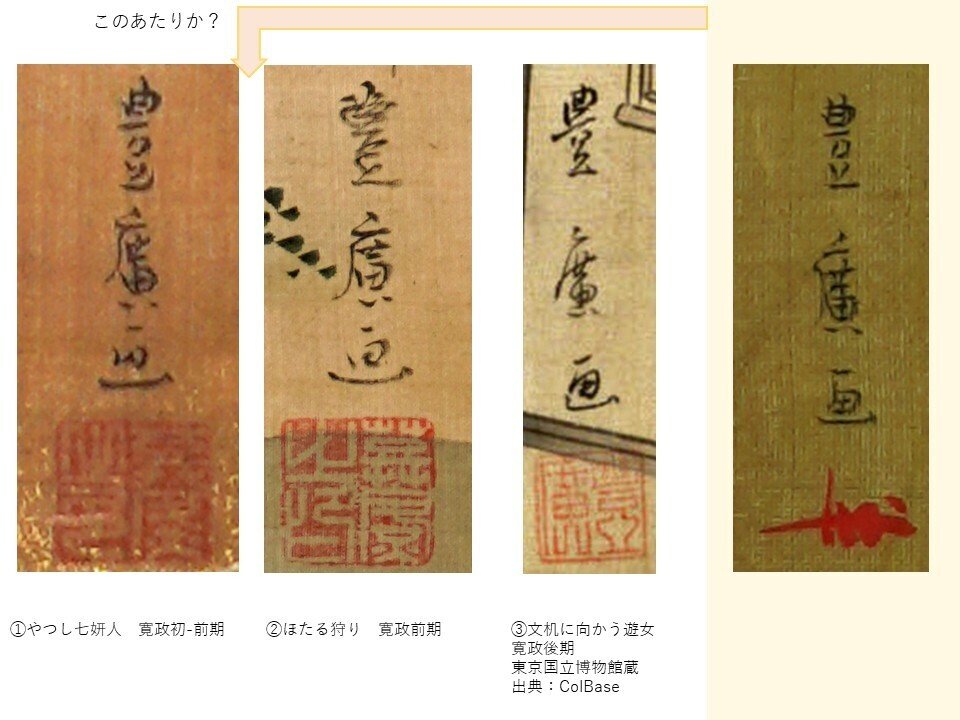 このあたりか？
豊廣画
豊廣画
豊廣画
豊廣画
①やつし七妍人　寛政初-前期
②ほたる狩り　寛政前期
③文机に向かう遊女
寛政後期
東京国立博物館蔵
出典：ColBase